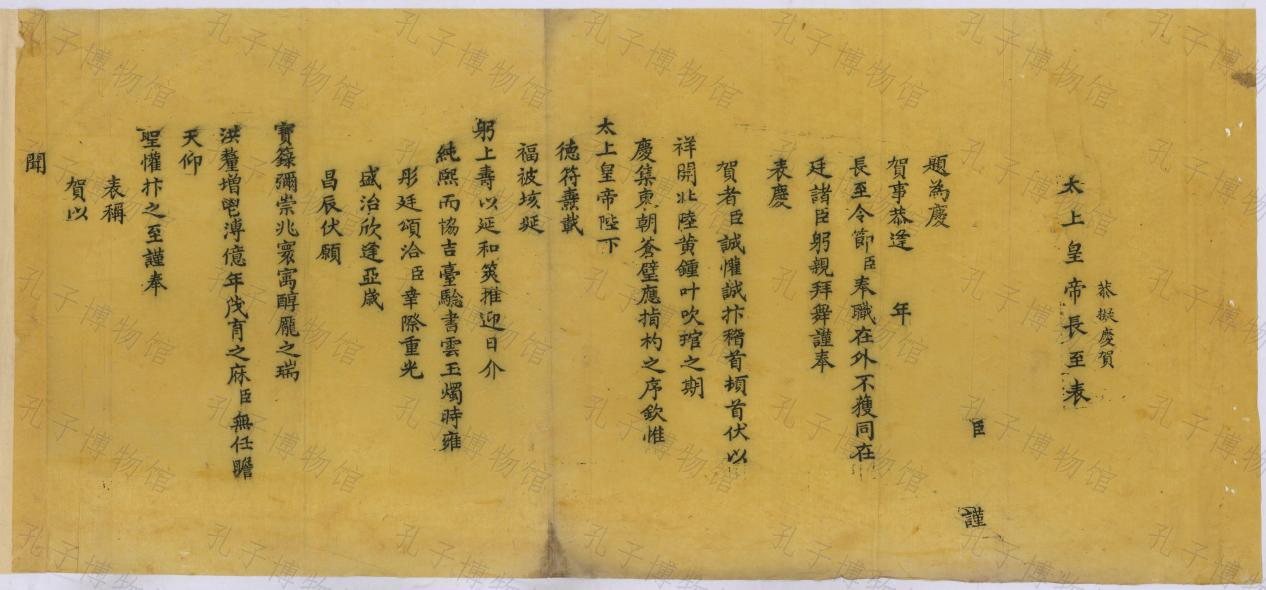 恭擬慶賀
太上皇帝長至表
臣 謹
題為慶
賀事恭逢 年
長至令節臣奉職在外不獲同在
廷諸臣躬親拜舞謹奉
表慶
賀者臣誠懽誠忭稽首頓首伏以
祥開北陸黃鍾叶吹琯之期
慶集東朝蒼璧應指杓之序欽惟
太上皇帝陛下
德符燾載
福被垓埏
躬上壽以延和筴推迎日介
純熙而協吉臺驗書雲玉燭時雍
彤廷頌洽臣幸際重光
盛治欣逢亞歲
昌辰伏願
寶籙彌崇兆寰㝢醇龎之瑞
洪釐增鬯溥億年茂育之庥臣無任瞻
天仰
聖懽忭之至謹奉
表稱
賀以
聞
孔子博物馆